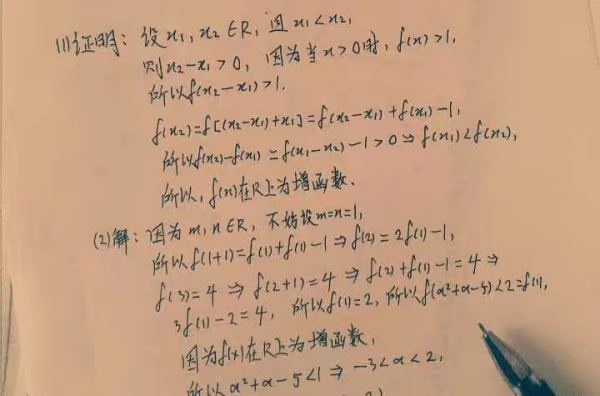 (1)证明：设x₁,x₂∈R,且x₁<x₂,
则x₂-x₁>0,因为当x>0时,f(x)>1,
所以f(x₂-x₁)>1.
f(x₂)=f[(x₂-x₁)+x₁]=f(x₂-x₁)+f(x₁)-1,
所以f(x₂)-f(x₁)=f(x₁-x₂)-1>0⇒f(x₁)<f(x₂),
所以,f(x)在R上为增函数.
(2)解：因为m,n∈R,不妨设m=n=1,
所以f(1+1)=f(1)+f(1)-1⇒f(2)=2f(1)-1,
f(3)=4⇒f(2+1)=4⇒f(2)+f(1)-1=4⇒
3f(1)-2=4,所以f(1)=2,所以f(a²+a-5)<2=f(1),
因为f(x)在R上为增函数,
所以a²+a-5<1⇒-3<a<2,